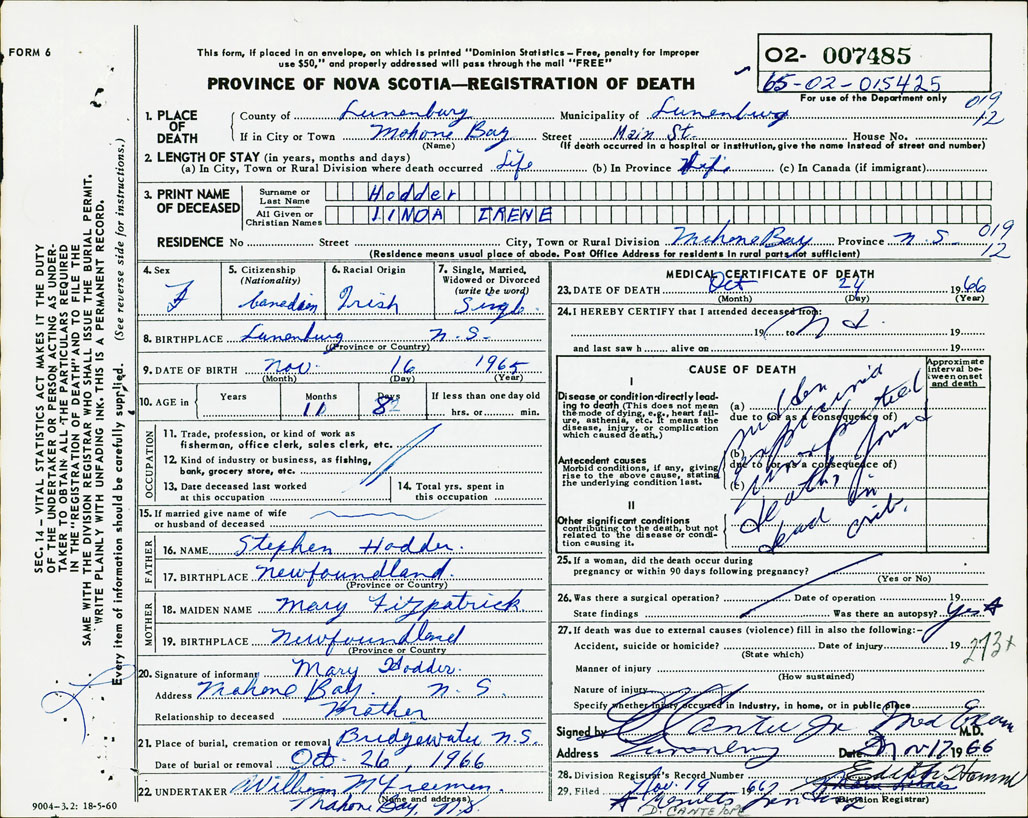 FORM 6
This form, if placed in an envelope, on which is printed "Dominion Statistics – Free, penalty for improper
use $50," and properly addressed will pass through the mail "FREE"
PROVINCE OF NOVA SCOTIA—REGISTRATION OF DEATH
02- 007485
65-02-015425
For use of the Department only
019
12
SEC. 14 – VITAL STATISTICS ACT MAKES IT THE DUTY
OF THE UNDERTAKER OR PERSON ACTING AS UNDER-
TAKER TO OBTAIN ALL THE PARTICULARS REQUIRED
IN THE "REGISTRATION OF DEATH" AND TO FILE THE
SAME WITH THE DIVISION REGISTRAR WHO SHALL ISSUE THE BURIAL PERMIT.
WRITE PLAINLY WITH UNFADING INK. THIS IS A PERMANENT RECORD.
Every item of information should be carefully supplied. (See reverse side for instructions.)
1. PLACE OF DEATH
County of Lunenburg Municipality of Lunenburg
If in City or Town Mahone Bay Street Main St. House No.
(Name) (If death occurred in a hospital or institution, give the name instead of street and number)
2. LENGTH OF STAY (in years, months and days)
(a) In City, Town or Rural Division where death occurred Life (b) In Province (c) In Canada (if immigrant)
3. PRINT NAME OF DECEASED
Surname or Last Name Hodder
All Given or Christian Names LINDA IRENE
RESIDENCE No Street City, Town or Rural Division Mahone Bay Province N.S.
019
12
(Residence means usual place of abode. Post Office Address for residents in rural parts not sufficient)
4. Sex F
5. Citizenship (Nationality) Canadian
6. Racial Origin Irish
7. Single, Married, Widowed or Divorced (write the word) Single
8. BIRTHPLACE Lunenburg N.S.
(Province or Country)
9. DATE OF BIRTH Nov. 16 1965
(Month) (Day) (Year)
10. AGE in Years Months 11 Days 8 If less than one day old hrs. or min.
OCCUPATION
11. Trade, profession, or kind of work as
fisherman, office clerk, sales clerk, etc.
12. Kind of industry or business, as fishing,
bank, grocery store, etc.
13. Date deceased last worked at this occupation
14. Total yrs. spent in this occupation
15. If married give name of wife
or husband of deceased
FATHER
16. NAME Stephen Hodder.
17. BIRTHPLACE Newfoundland.
(Province or Country)
MOTHER
18. MAIDEN NAME Mary Fitzpatrick
19. BIRTHPLACE Newfoundland
(Province or Country
20. Signature of informant Mary Hodder.
Address Mahone Bay. N.S.
Relationship to deceased Mother
21. Place of burial, cremation or removal Bridgewater N.S.
Date of burial or removal Oct. 26, 1966
22. UNDERTAKER William M Freeman
(Name and address)
Mahone Bay, N.S.
9004–3.2: 18-5-60
MEDICAL CERTIFICATE OF DEATH
23. DATE OF DEATH Oct 24 1966
(Month) (Day) (Year)
24. I HEREBY CERTIFY that I attended deceased from:
19 to 19
and last saw h alive on 19
CAUSE OF DEATH
Approximate interval between onset and death
I
Disease or condition directly lead-
ing to death (This does not mean
the mode of dying, e.g., heart fail-
ure, asthenia, etc. It means the
disease, injury, or complication
which caused death.)
(a)
due to (or as a consequence of)
Antecedent causes
Morbid conditions, if any, giving
rise to the above cause, stating
the underlying condition last.
(b)
due to (or as a consequence of)
(c)
sudden
unexplained
unexpected
death, found
dead in
crib.
II
Other significant conditions
contributing to the death, but not
related to the disease or condi-
tion causing it.
25. If a woman, did the death occur during
pregnancy or within 90 days following pregnancy?
(Yes or No)
26. Was there a surgical operation? Date of operation 19
State findings Was there an autopsy? Yes
27. If death was due to external causes (violence) fill in also the following:–
Accident, suicide or homicide? Date of injury 19
(State which)
273+
Manner of injury
(How sustained)
Nature of injury
Specify whether injury occurred in industry, in home, or in public place
Signed by Cantelope Jr Med Exam M.D.
Address Lunenburg Date Nov 17 1966
28. Division Registrar's Record Number Edith Hamm
29. Filed Nov. 19 1966
(Division Registrar)
Results
D. CANTELOPE